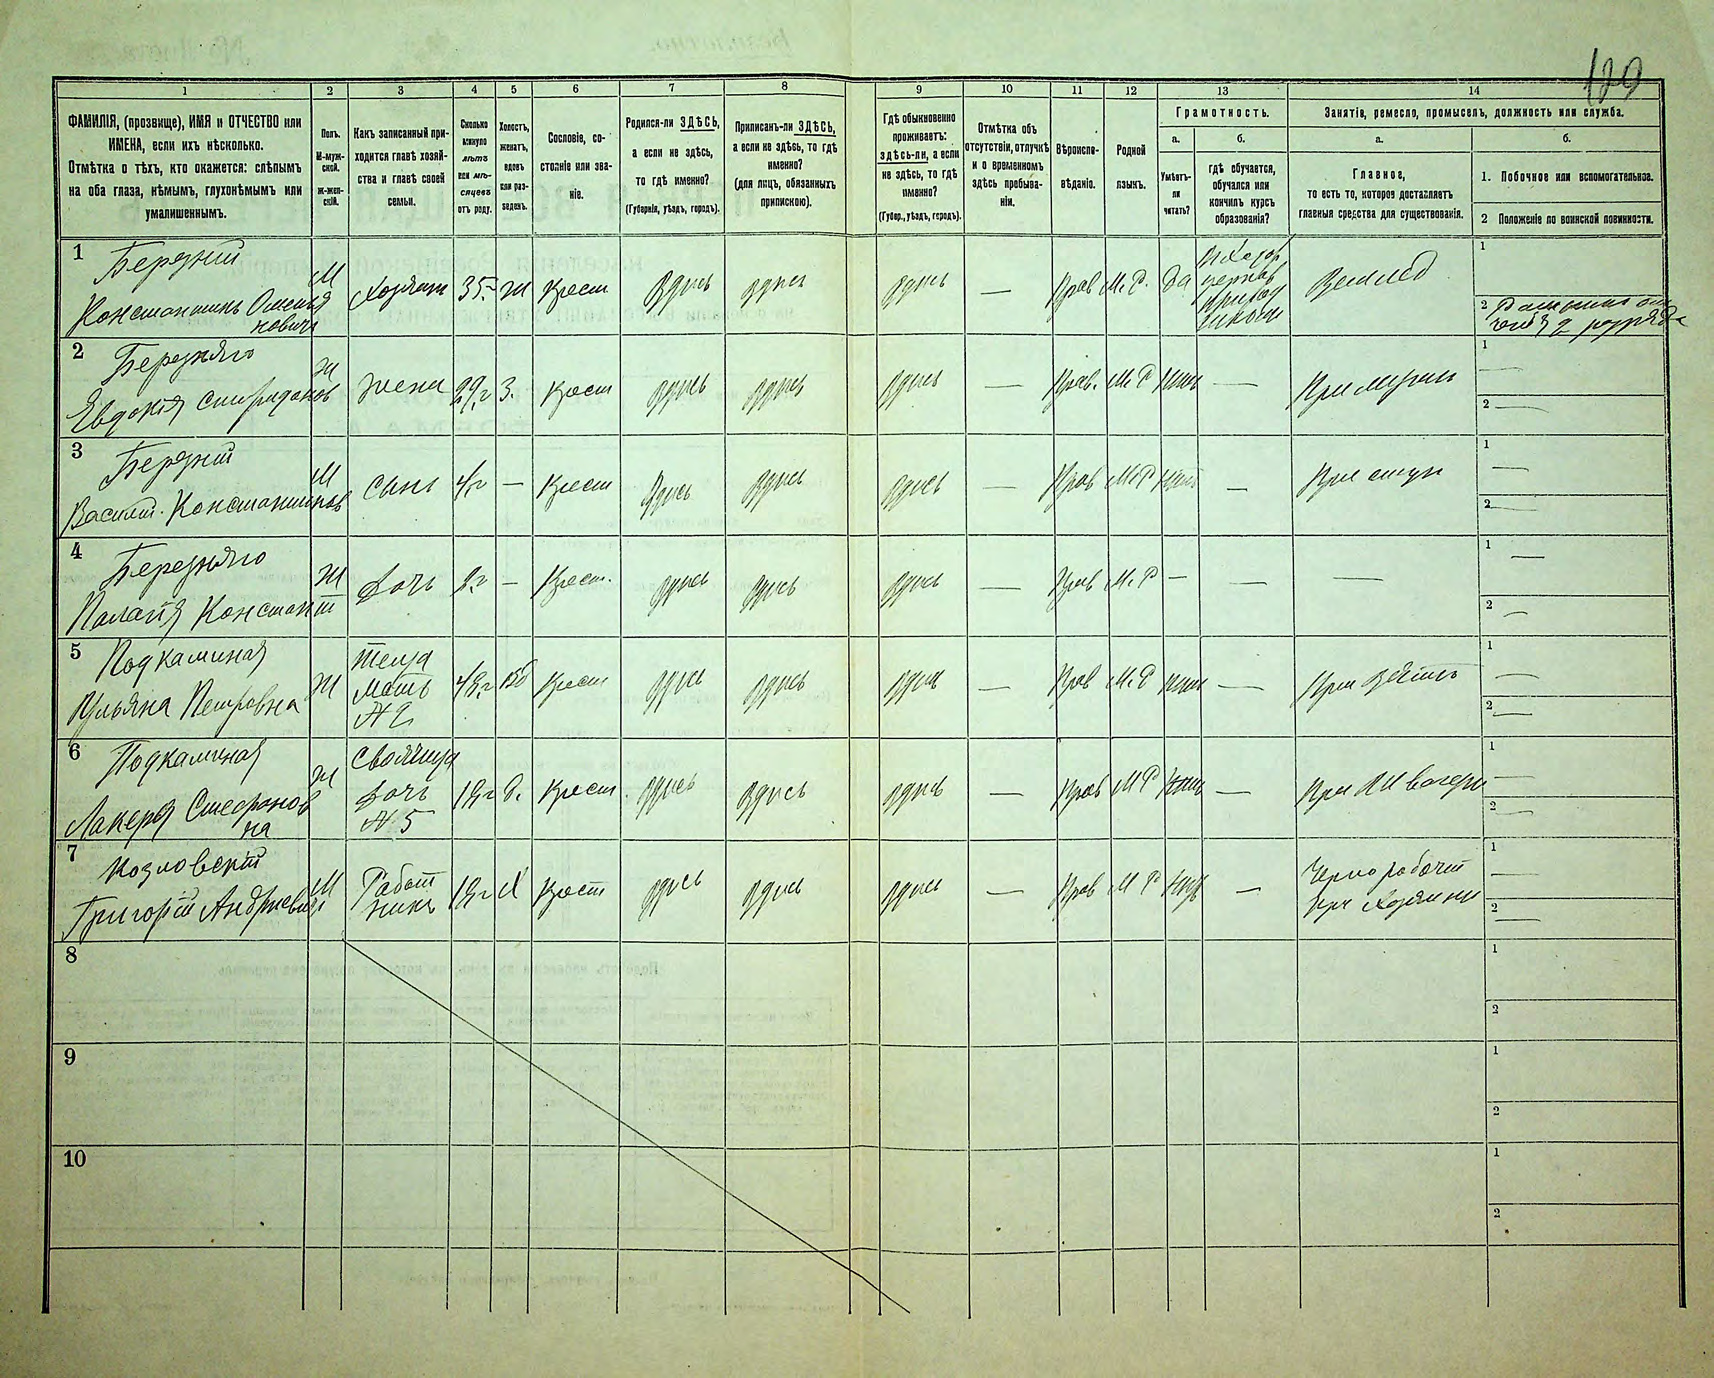 129
1 2 3 4 5 6 7 8 9 10 11 12 13 14
ФАМИЛІЯ, (прозвище), ИМЯ и ОТЧЕСТВО или
ИМЕНА, если ихъ нѣсколько.
Отмѣтка о тѣхъ, кто окажется: слѣпымъ
на оба глаза, нѣмымъ, глухонѣмымъ или
умалишеннымъ.
Полъ.
М-муж-
ской.
ж-жен-
скій.
Какъ записанный при-
ходится главѣ хозяй-
ства и главѣ своей
семьи.
Сколько
минуло
лѣтъ
или мѣ-
сяцевъ
отъ роду.
Холостъ,
женатъ,
вдовъ
или раз-
веденъ.
Сословіе, со-
стояніе или зва-
ніе.
Родился-ли ЗДѢСЬ,
а если не здѣсь,
то гдѣ именно?
(Губернія, уѣздъ, городъ).
Приписанъ-ли ЗДѢСЬ,
а если не здѣсь, то гдѣ
именно?
(для лицъ, обязанныхъ
припискою).
Гдѣ обыкновенно
проживаетъ:
здѣсь-ли, а если
не здѣсь, то гдѣ
именно?
(Губер., уѣздъ, городъ).
Отмѣтка объ
отсутствіи, отлучкѣ
и о временномъ
здѣсь пребыва-
ніи.
Вѣроиспо-
вѣданіе.
Родной
языкъ.
Грамотность.
а.
Умѣетъ-
ли
читать?
б.
гдѣ обучается,
обучался или
кончилъ курсъ
образованія?
Занятіе, ремесло, промыселъ, должность или служба.
а.
Главное,
то есть то, которое доставляетъ
главныя средства для существованія.
б.
1. Побочное или вспомогательное.
2 Положеніе по воинской повинности.
1 Бережній
Константинъ
М Хозяинъ 35 ж Крест здѣсь здѣсь здѣсь — Прав М.Р. да
1
2
2 Бережняго
Евдокія Спиридонов
ж жена 29 г З. Крест здѣсь здѣсь здѣсь — Прав. М.Р нѣтъ — При мужѣ
1 —
2 —
3 Бережній
Василій Константинов
М сынъ 4 г — Крест здѣсь здѣсь здѣсь — Прав М.Р нѣтъ — При отцѣ
1 —
2 —
4 Бережняго
Палагія Констант
Ж дочь — Крест. здѣсь здѣсь здѣсь — Прав М.Р — — —
1 —
2 —
5 Подкаминая
Ульяна Петровна
Ж теща
мать
№ 2
вд Крест здѣсь здѣсь здѣсь — Прав М.Р нѣтъ — При зятѣ
1 —
2 —
6 Подкаминая
Лакерія Стефанов
на
Ж Своячица
дочь
№ 5
Д. Крест здѣсь здѣсь здѣсь — Прав М Р нѣтъ —
1 —
2 —
7 Козловскій
Григорій Андреевич
М Работ
никъ
Х Крест здѣсь здѣсь здѣсь — Прав М Р —
Чернорабочій
при Хозяинѣ
1 —
2 —
8
1
2
9
1
2
10
1
2